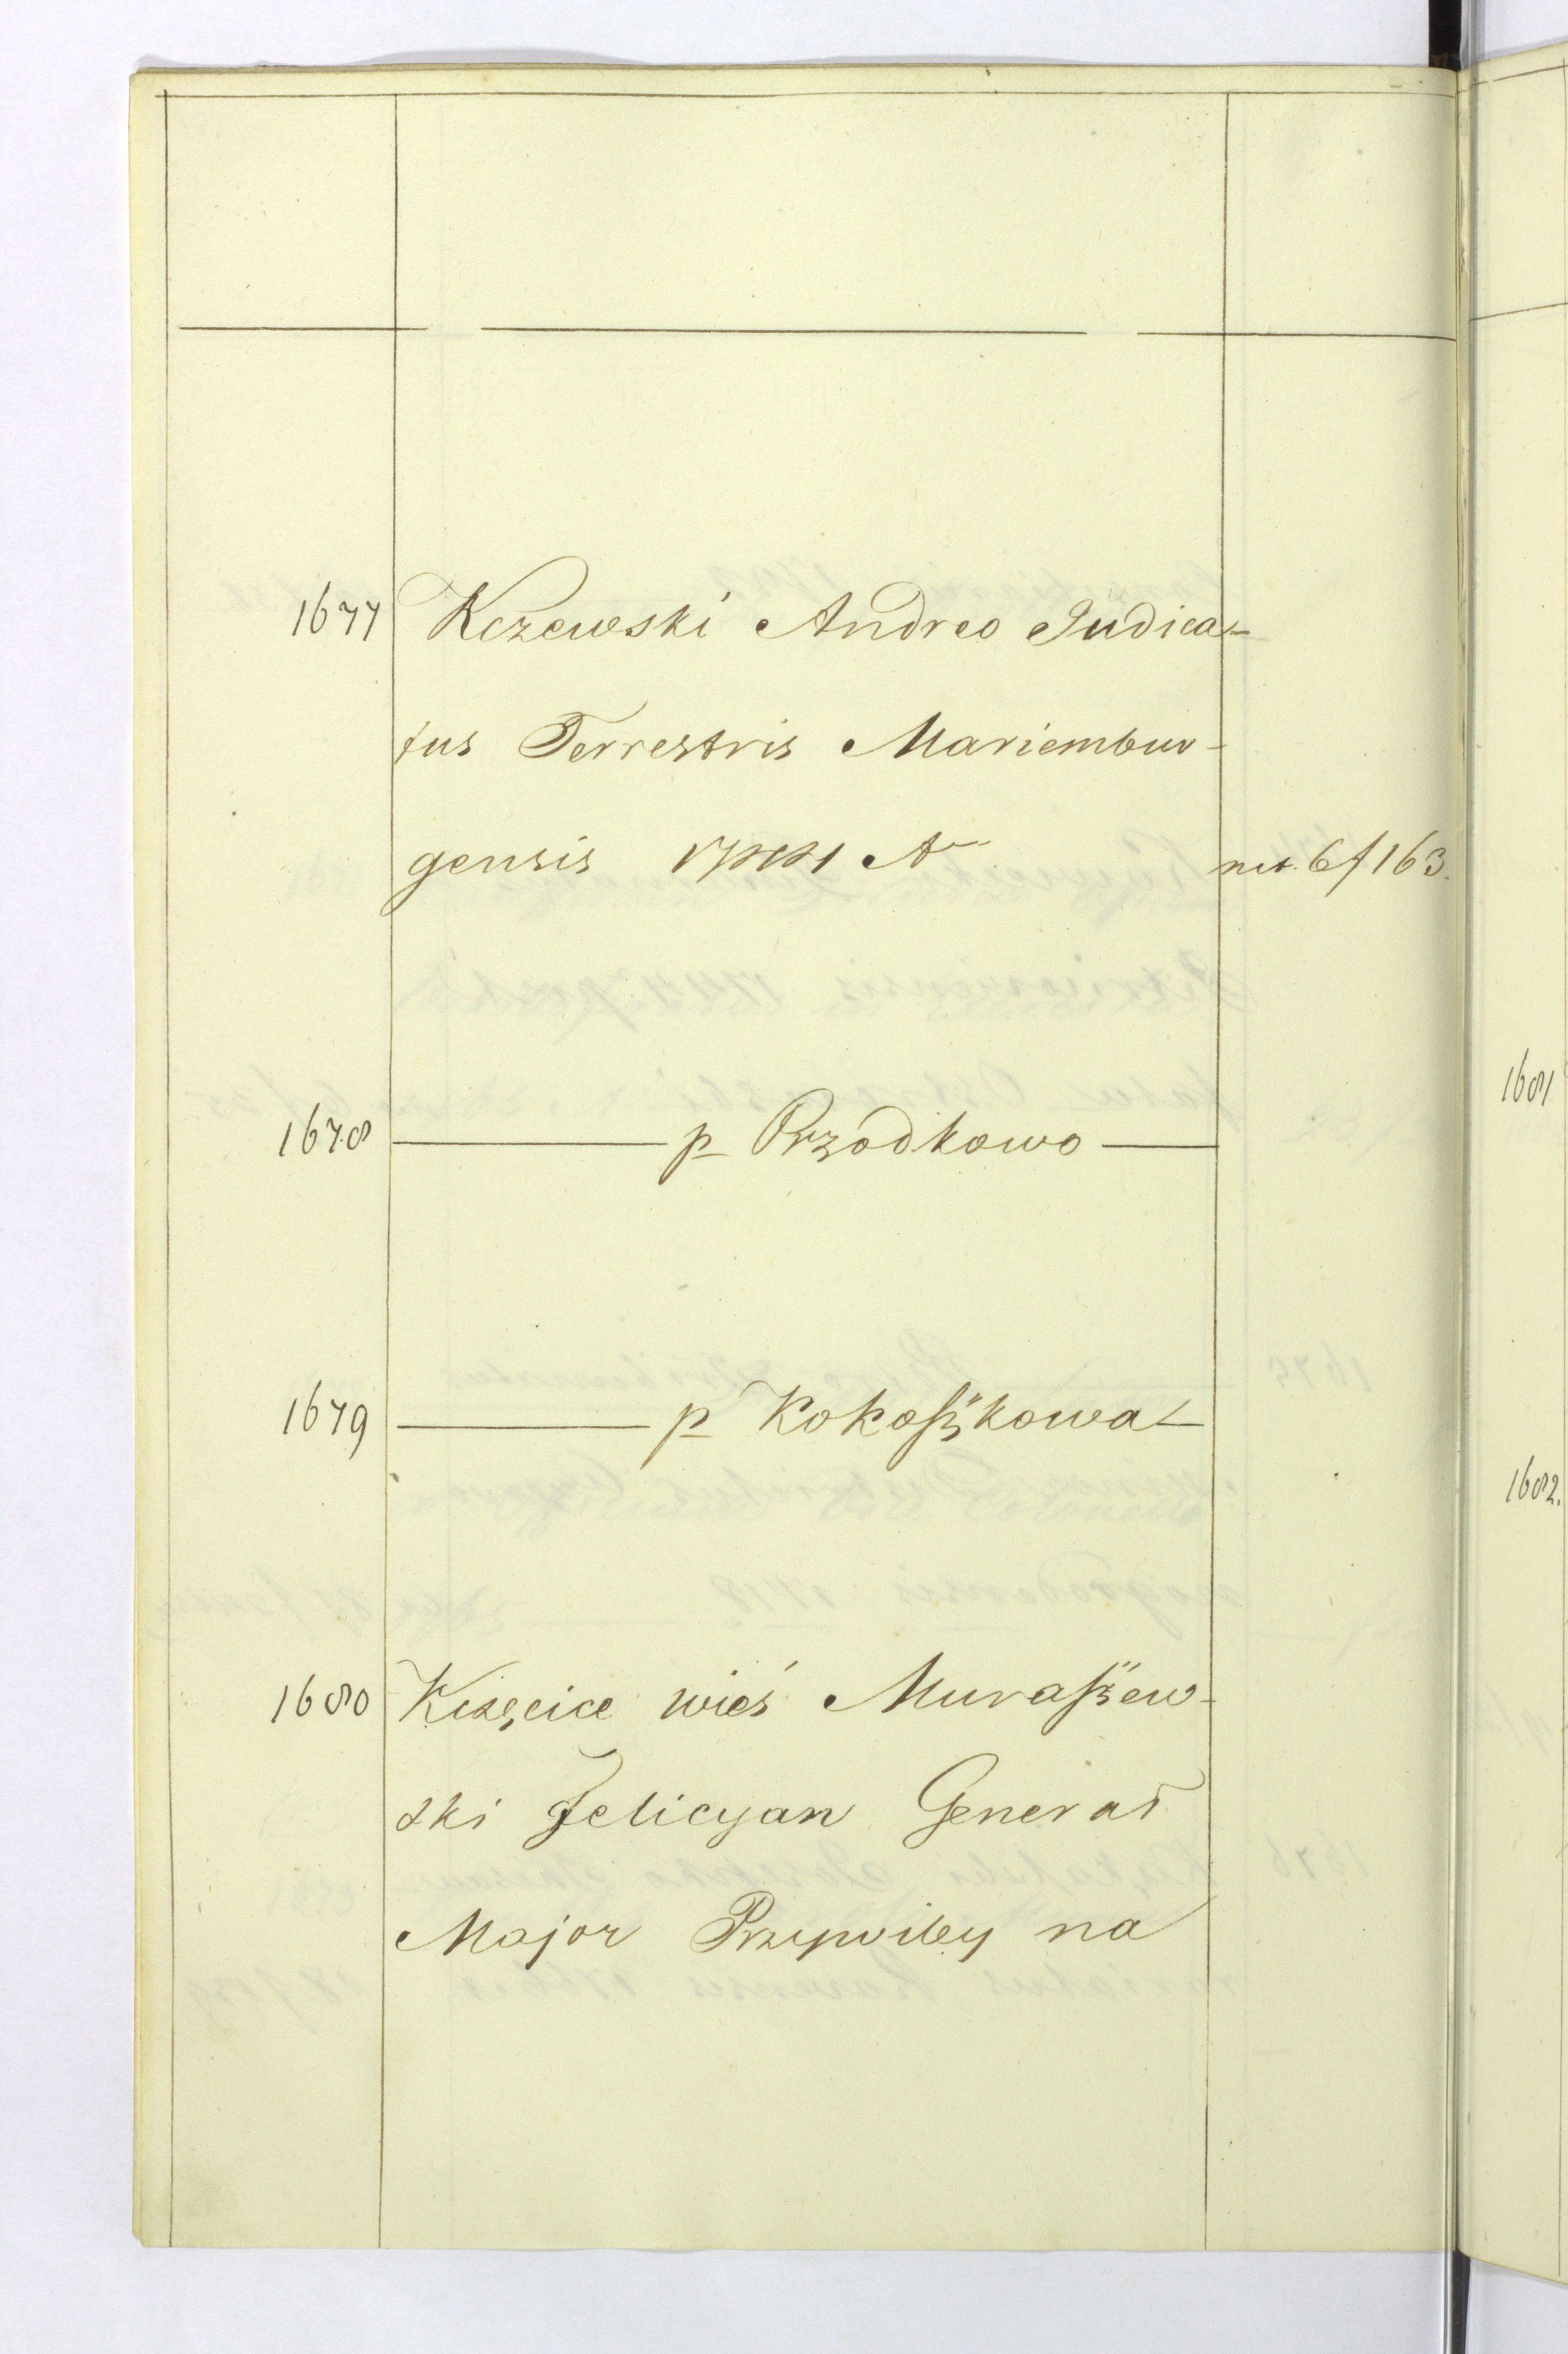 1677 Kczewski Andreo Judica-
tus Terrestris Mariembur-
gensis A nr. 6 f 163.
1678 p Przodkowo
1679 p Kokoszkowa
1680 wieś Muraszew-
ski Felicyan Generał
Major na
1681
1682.